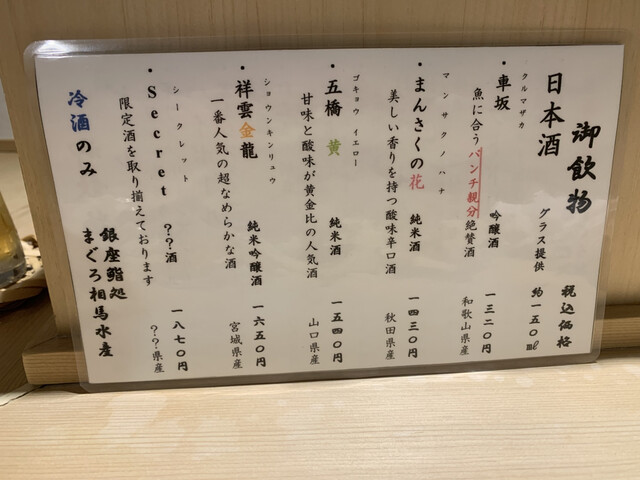 御飲物
税込価格
日本酒
グラス提供
約一五〇㎖
クルマザカ
・車坂
吟醸酒
一三二〇円
魚に合うパンチ親分絶賛酒
和歌山県産
マンサクノハナ
・まんさくの花
純米酒
一四三〇円
美しい香りを持つ酸味辛口酒
秋田県産
ゴキョウ イエロー
・五橋 黄
純米酒
一五四〇円
甘味と酸味が黄金比の人気酒
山口県産
ショウンキンリュウ
・祥雲金龍
純米吟醸酒
一六五〇円
一番人気の超なめらかな酒
宮城県産
シークレット
・Secret
？？酒
一八七〇円
限定酒を取り揃えております
？？県産
冷酒のみ
銀座鮨処
まぐろ相馬水産